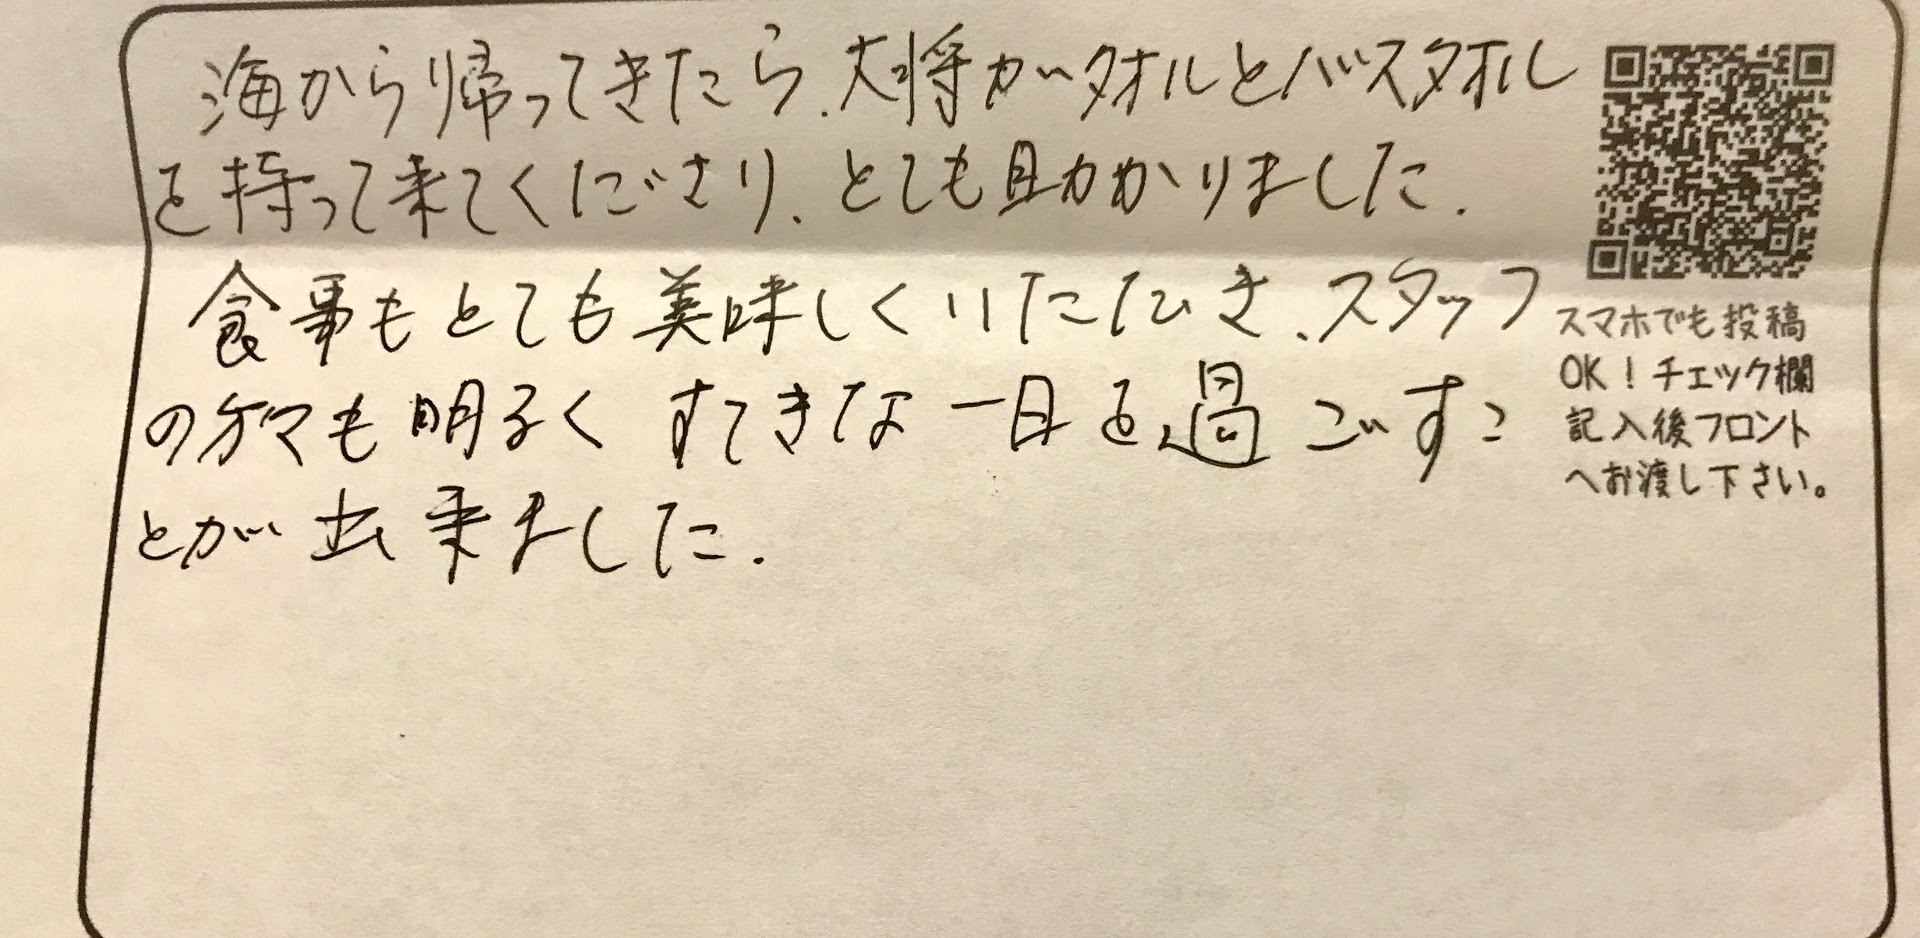 海から帰ってきたら、大将がタオルとバスタオル
を持って来てくださり、とても助かりました。
食事もとても美味しくいただき、スタッフ
の方々も明るくすてきな一日を過ごすこ
とが出来ました。
スマホでも投稿
OK！チェック欄
記入後フロント
へお渡し下さい。